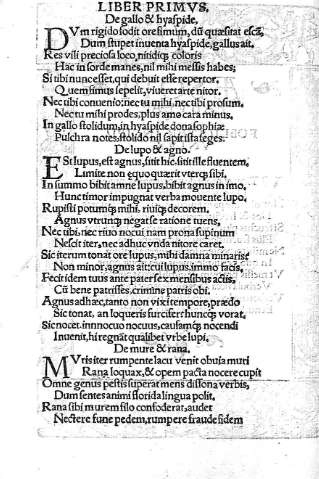 LIBER PRIMVS.
De gallo & hyaspide.
DVm rigido fodit ore fimum, dū quæsitat escā,
Dum stupet inuenta hyaspide, gallus ait.
Res vili preciosa loco, nitidiq; coloris
Hac in sorde manes, nil mihi messis habes;
Si tibi nunc esset, qui debuit esse repertor.
Quem fimus sepelit, viueret arte nitor.
Nec tibi conuenio: nec tu mihi, nec tibi prosum.
Nec tu mihi prodes, plus amo cara minus.
In gallo stolidum, in hyaspide dona sophiæ
Pulchra notes stolido nil sapit ista seges.
De lupo & agno.
ESt lupus, est agnus, sitit hic. sitit ille fluentem,
Limite non equo quærit vterq; sibi.
In summo bibit amne lupus, bibit agnus in imo,
Hunc timor impugnat verba mouente lupo.
Rupisti potumq; mihi. riuiq; decorem.
Agnus vtrunq; negat se ratione tuens,
Nec tibi, nec riuo nocui nam prona supinum
Nescit iter, nec adhuc vnda nitore caret.
Sic iterum tonat ore lupus, mihi damna minaris?
Non minor, agnus ait: cui lupus. immo facis,
Fecit idem tuus ante pater sex mensibus actis,
Cū bene patrisses, crimine patris obi.
Agnus ad hæc, tanto non vixi tempore, prædo
Sic tonat, an loqueris furcifer? huncq; vorat,
Sic nocet innocuo nocuus, causamq; nocendi
Inuenit, hi regnāt qualibet vrbe lupi.
De mure & rana.
MVris iter rumpente lacu venit obuia muri
Rana loquax, & opem pacta nocere cupit
Omne genus pestis superat mens dissona verbis,
Dum sentes animi florida lingua polit.
Rana sibi murem filo confœderat, audet
Nectere fune pedem, rumpere fraude fidem